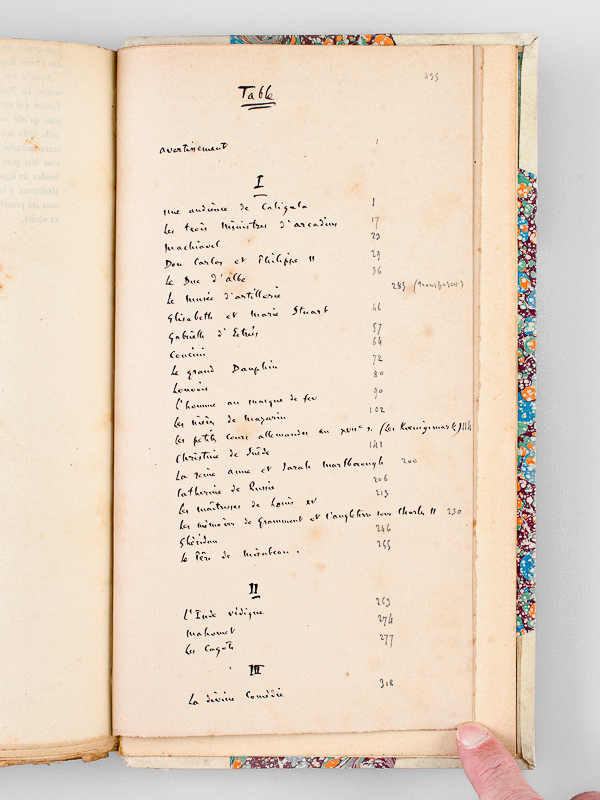 435
Table
avertissement 1
I
Une audience de Caligula 1
Les trois Ministres d'arcadius 17
Machiavel 23
Don Carlos et Philippe II 29
Le Duc d'albe 36
Le musée d'artillerie 283 (transposer)
Elisabeth et Marie Stuart 46
Gabrielle d'Estrées 57
Concini 64
Le grand Dauphin 72
Louvois 80
L'homme au masque de fer 90
Les nièces de Mazarin 102
Les petites cours allemandes au XVIIe s. (Les Kœnigsmark) 114
Christine de Suède 141
La reine anne et Sarah Marlborough 200
Catherine de Russie 206
Les maîtresses de Louis XV 213
Les mémoires de Grammont et l'angleterre sous Charles II 230
Shéridan 246
Le Père de Mirabeau. 255
II
L'Inde védique 263
Mahomet 274
Les Cagots 277
III
La divine Comédie 318